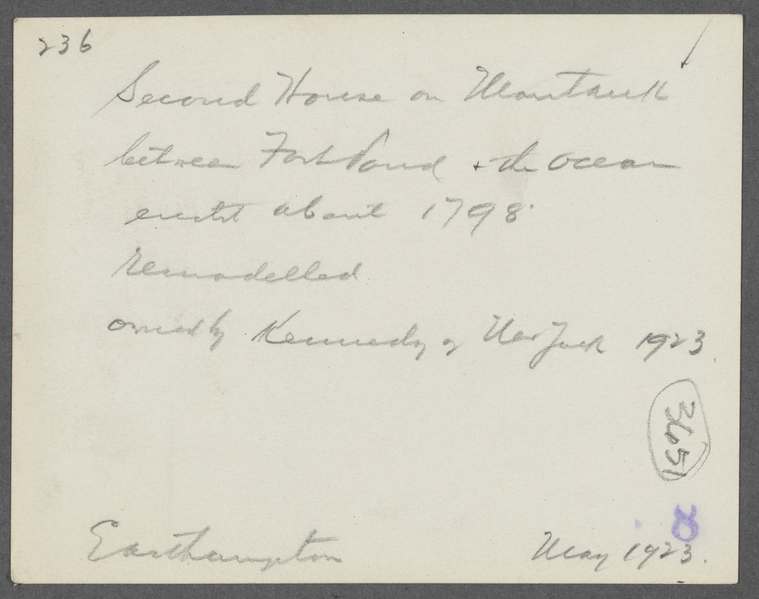 236
Second House on Montauk
between Fort Pond + the Ocean
erected about 1798
remodelled
owned by Kennedy of New York 1923
3651
8
Easthampton May 1923.